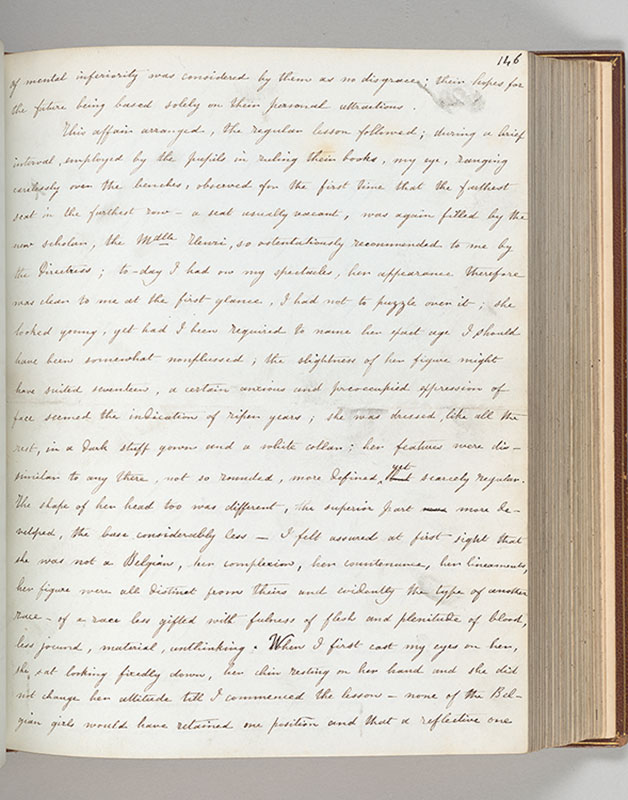 146
of mental inferiority was considered by them as no disgrace; their hopes for
the future being based solely on their personal attractions.
This affair arranged, the regular lesson followed; during a brief
interval, employed by the pupils in ruling their books, my eye, ranging
carelessly over the benches, observed for the first time that the farthest
seat in the farthest row – a seat usually vacant, was again filled by the
new scholar, the Mdlle Henri, so ostentatiously recommended to me by
the Directress; to-day I had on my spectacles, her appearance therefore
was clear to me at the first glance, I had not to puzzle over it; she
looked young, yet had I been required to name her exact age I should
have been somewhat nonplussed; the slightness of her figure might
have suited seventeen, a certain anxious and preoccupied expression of
face seemed the indication of riper years; she was dressed, like all the
rest, in a dark stuff gown and a white collar; her features were dis-
similar to any there, not so rounded, more defined, yet scarcely regular.
The shape of her head too was different, the superior part more de-
veloped, the base considerably less – I felt assured at first sight that
she was not a Belgian, her complexion, her countenance, her lineaments,
her figure were all distinct from theirs and evidently the type of another
race – of a race less gifted with fulness of flesh and plenitude of blood,
less jocund, material, unthinking. When I first cast my eyes on her,
she sat looking fixedly down, her chin resting on her hand and she did
not change her attitude till I commenced the lesson – none of the Bel-
gian girls would have retained one position and that a reflective one